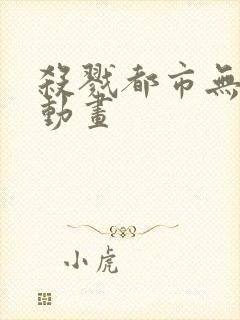 殺戮都市無
動畫
小虎